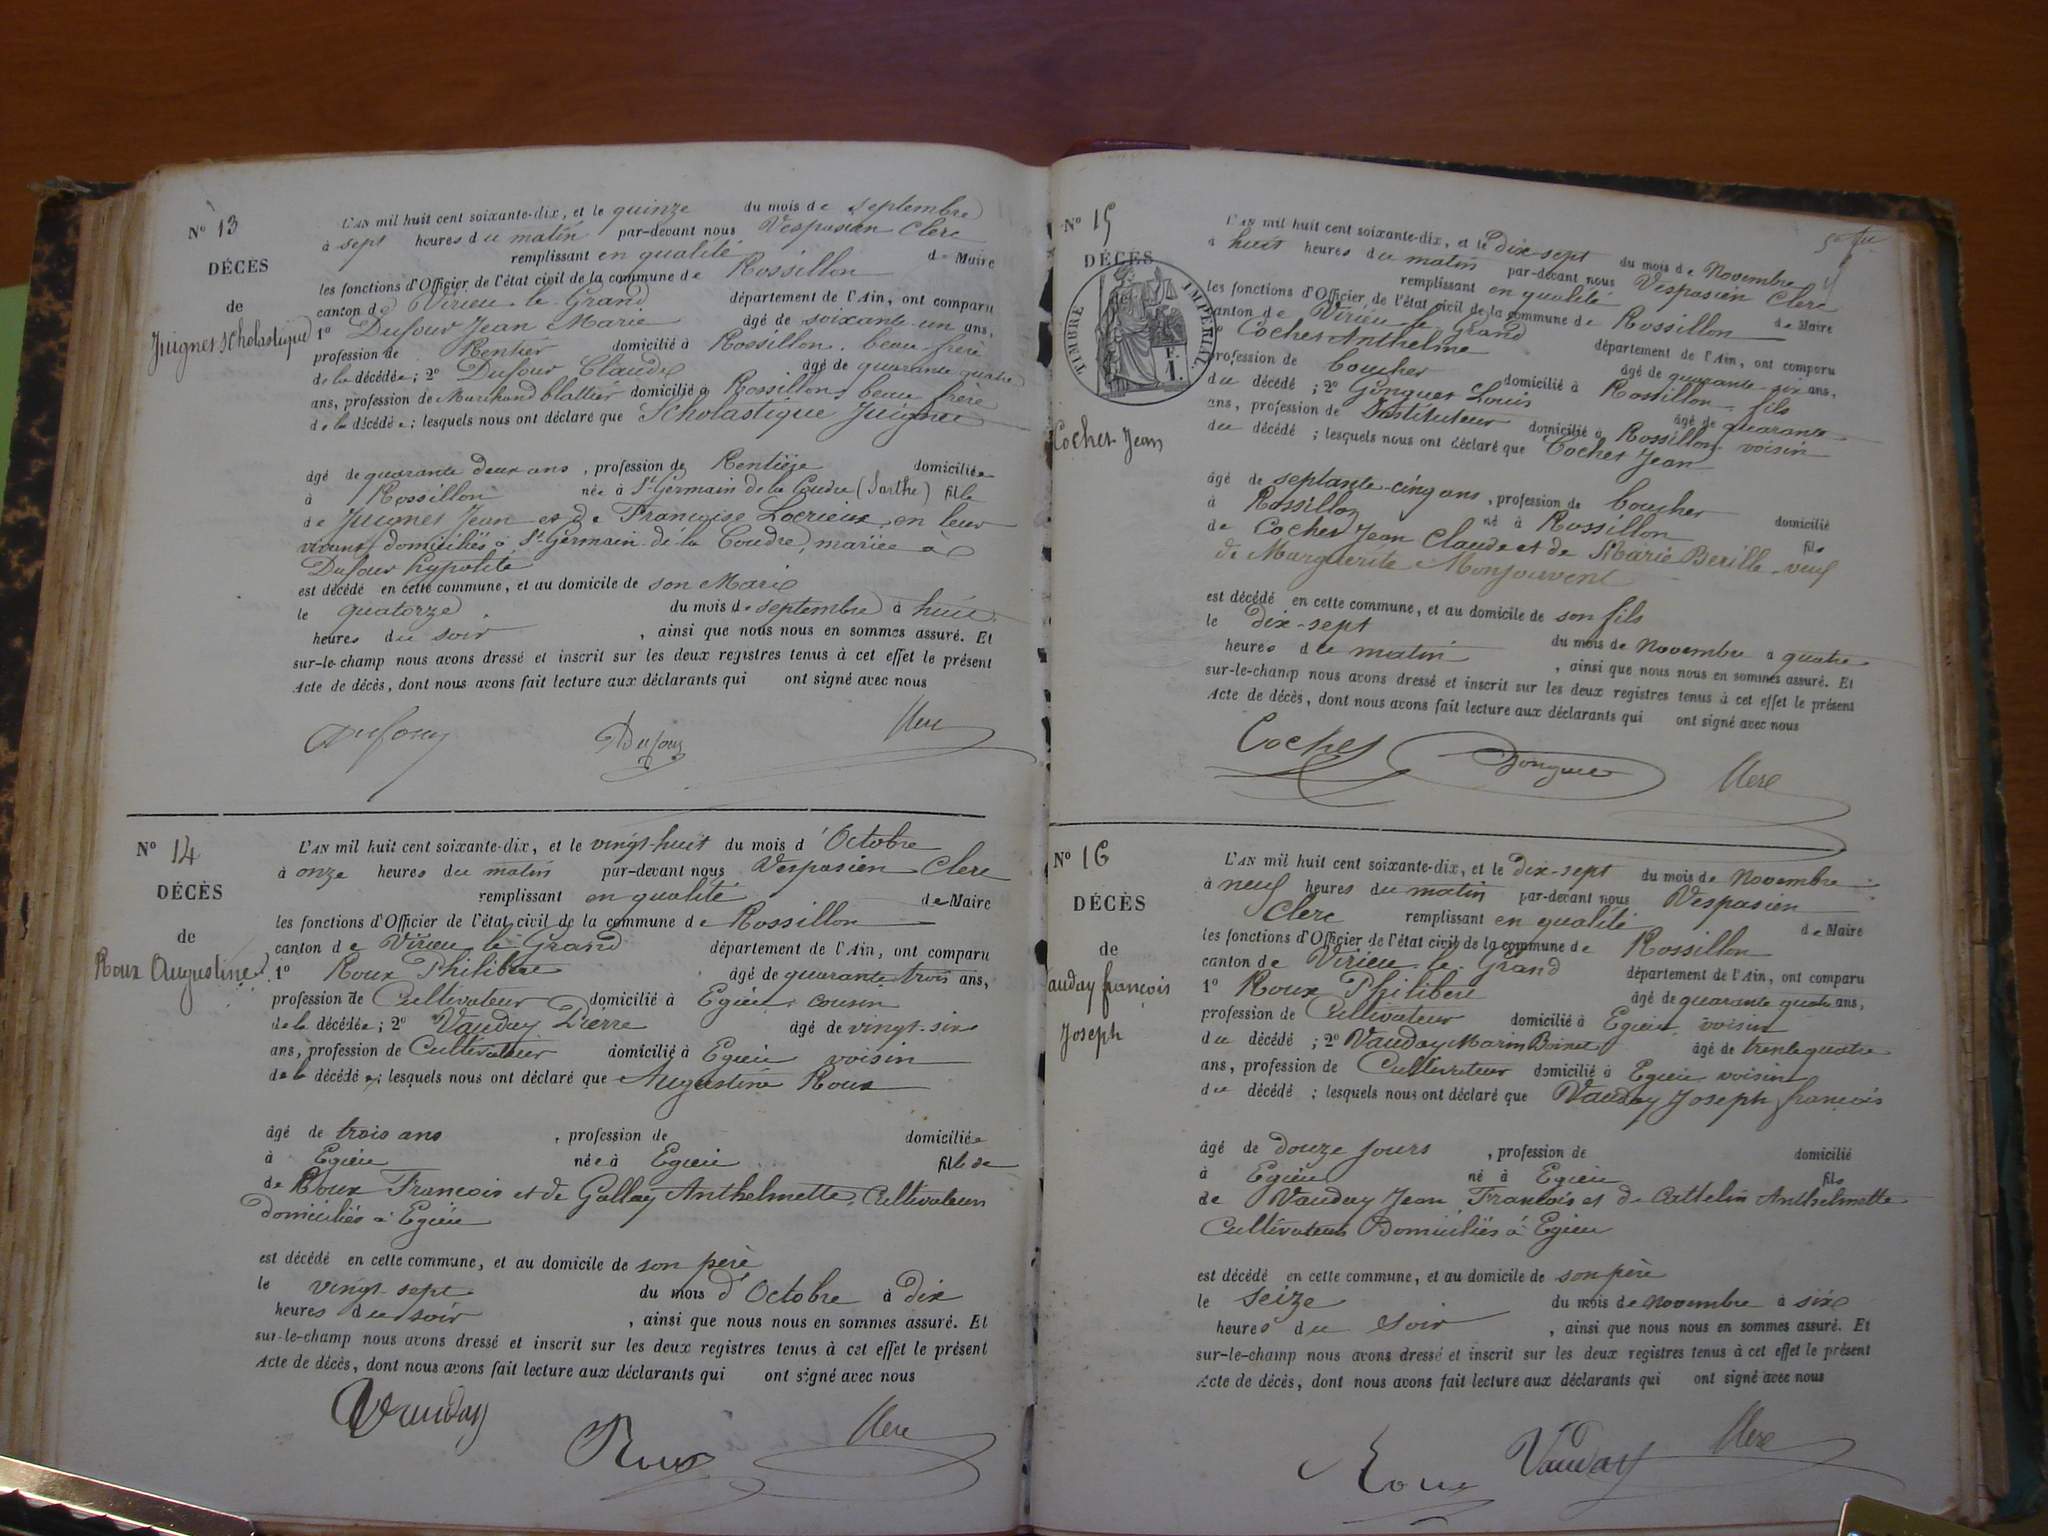 N° 13
DÉCÈS
de
Juignet Scholastique
L'AN mil huit cent soixante-dix, et le quinze du mois de septembre
à sept heures du matin par-devant nous Vespasien Clerc
remplissant en qualité de Maire
les fonctions d'Officier de l'état civil de la commune de Rossillon
canton de Virieu le Grand département de l'Ain, ont comparu
1° Dufour Jean Marie âgé de soixante-un ans,
profession de Rentier domicilié à Rossillon, beau-frère
de la décédée; 2° Dufour Claude âgé de quarante quatre
ans, profession de Marchand blattier domicilié à Rossillon, beau frère
de la décédée; lesquels nous ont déclaré que Scholastique Juignet
âgé de quarante deux ans, profession de Rentière domiciliée
à Rossillon née à St Germain de la Coudre (Sarthe) fille
de Juignet Jean et de Françoise Lorieux en leur
vivant domiciliés à St Germain de la Coudre, mariée à
Dufour hypolite
est décédé en cette commune, et au domicile de son Mari
le quatorze du mois de septembre à huit
heures du soir, ainsi que nous nous en sommes assuré. Et
sur-le-champ nous avons dressé et inscrit sur les deux registres tenus à cet effet le présent
Acte de décès, dont nous avons fait lecture aux déclarants qui ont signé avec nous
Dufour Dufour Clerc
N° 14
DÉCÈS
de
Roux Augustine
L'AN mil huit cent soixante-dix, et le vingt-huit du mois d'Octobre
à onze heures du matin par-devant nous Vespasien Clerc
remplissant en qualité de Maire
les fonctions d'Officier de l'état civil de la commune de Rossillon
canton de Virieu le Grand département de l'Ain, ont comparu
1° Roux Philibert âgé de quarante trois ans,
profession de Cultivateur domicilié à Egieu, cousin
de la décédée; 2° Vauday Pierre âgé de vingt-six
ans, profession de Cultivateur domicilié à Egieu voisin
de la décédée; lesquels nous ont déclaré que Augustine Roux
âgé de trois ans, profession de domiciliée
à Egieu née à Egieu fille de
de Roux François et de Gallay Anthelmette, Cultivateurs
Domiciliés à Egieu
est décédé en cette commune, et au domicile de son père
le vingt-sept du mois d'Octobre à dix
heures du soir, ainsi que nous nous en sommes assuré. Et
sur-le-champ nous avons dressé et inscrit sur les deux registres tenus à cet effet le présent
Acte de décès, dont nous avons fait lecture aux déclarants qui ont signé avec nous
Vauday Roux Clerc
N° 15
DÉCÈS
TIMBRE IMPÉRIAL.
F.
1.
Cochet Jean
L'AN mil huit cent soixante-dix, et le dix-sept du mois de Novembre
à huit heures du matin par-devant nous Vespasien Clerc
remplissant en qualité de Maire
les fonctions d'Officier de l'état civil de la commune de Rossillon
canton de Virieu le Grand département de l'Ain, ont comparu
Cochet Anthelme âgé de quarante-six ans,
profession de boucher domicilié à Rossillon, fils
du décédé; 2° Louis âgé de quarante
ans, profession de Instituteur domicilié à Rossillon, voisin
du décédé; lesquels nous ont déclaré que Cochet Jean
âgé de septante-cinq ans, profession de boucher domicilié
à Rossillon né à Rossillon fils
de Cochet Jean Claude et de Marie Berille veuf
de Marguerite Monjouvent
est décédé en cette commune, et au domicile de son fils
le dix-sept du mois de Novembre à quatre
heures du matin, ainsi que nous nous en sommes assuré. Et
sur-le-champ nous avons dressé et inscrit sur les deux registres tenus à cet effet le présent
Acte de décès, dont nous avons fait lecture aux déclarants qui ont signé avec nous
Cochet Clerc
N° 16
DÉCÈS
de
auday françois
Joseph
L'AN mil huit cent soixante-dix, et le dix-sept du mois de Novembre
à neuf heures du matin par-devant nous Vespasien
Clerc remplissant en qualité de Maire
les fonctions d'Officier de l'état civil de la commune de Rossillon
canton de Virieu le Grand département de l'Ain, ont comparu
1° Roux Philibert âgé de quarante quatre ans,
profession de Cultivateur domicilié à Egieu, voisin
du décédé; 2° Vauday Marin Benoit âgé de trente quatre
ans, profession de Cultivateur domicilié à Egieu voisin
du décédé; lesquels nous ont déclaré que Vauday Joseph françois
âgé de Douze jours, profession de domicilié
à Egieu né à Egieu fils
de Vauday Jean François et de Cattelin Anthelmette
Cultivateurs Domiciliés à Egieu
est décédé en cette commune, et au domicile de son père
le seize du mois de Novembre à six
heures du Soir, ainsi que nous nous en sommes assuré. Et
sur-le-champ nous avons dressé et inscrit sur les deux registres tenus à cet effet le présent
Acte de décès, dont nous avons fait lecture aux déclarants qui ont signé avec nous
Roux Vauday Clerc